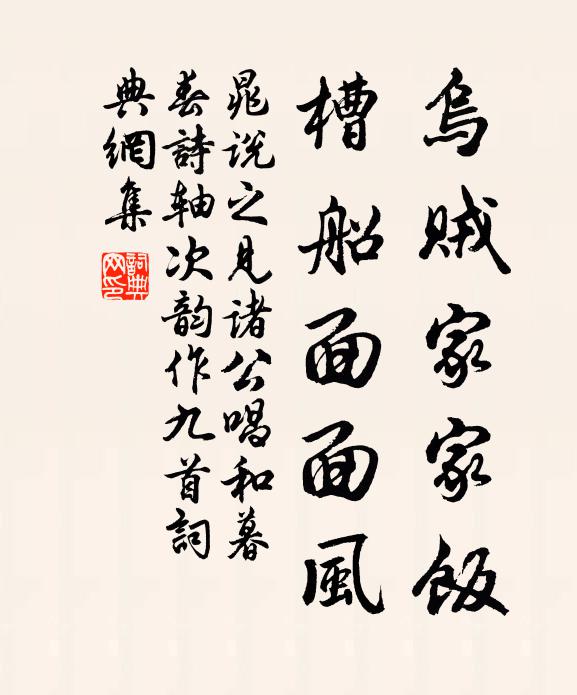 烏賊家家飯
槽船面面風
晁說之見諸公唱和暮
春詩軸次韵作九首詞
典網集
詞典网印